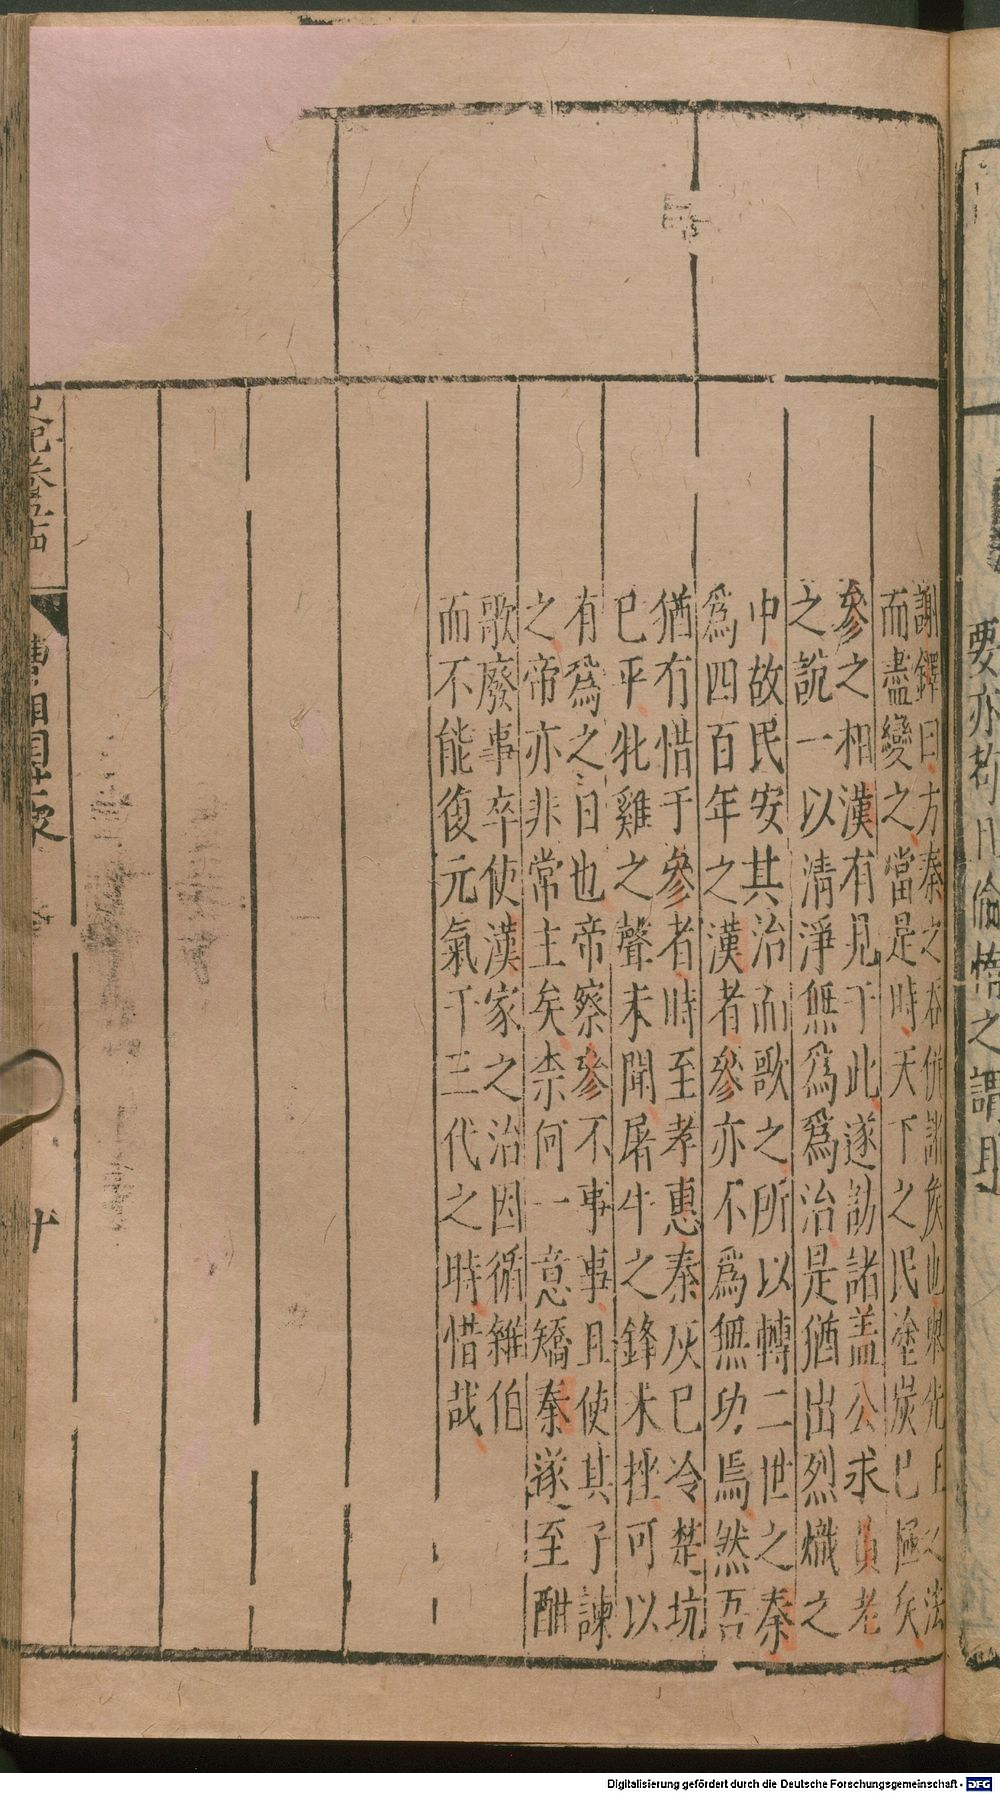 謝鐸曰方秦之吞併諸侯也舉先王之法
而盡變之當是時天下之民塗炭已極矣
參之相漢有見于此遂訪諸盖公求黃老
之說一以清淨無爲爲治是猶出烈熾之
中故民安其治而歌之所以轉二世之秦
爲四百年之漢者參亦不爲無功焉然吾
猶有惜于參者時至孝惠秦灰已冷楚坑
已平牝雞之聲未聞屠牛之鋒未挫可以
有爲之日也帝察參不事事且使其子諫
之帝亦非常主矣柰何一意矯秦遂至酣
歌廢事卒使漢家之治因循雜伯
而不能復元氣于三代之時惜哉
史記卷五十四
曹相國世家
十
要亦苟且偷惰之謂耳
Digitalisierung gefördert durch die Deutsche Forschungsgemeinschaft - DFG